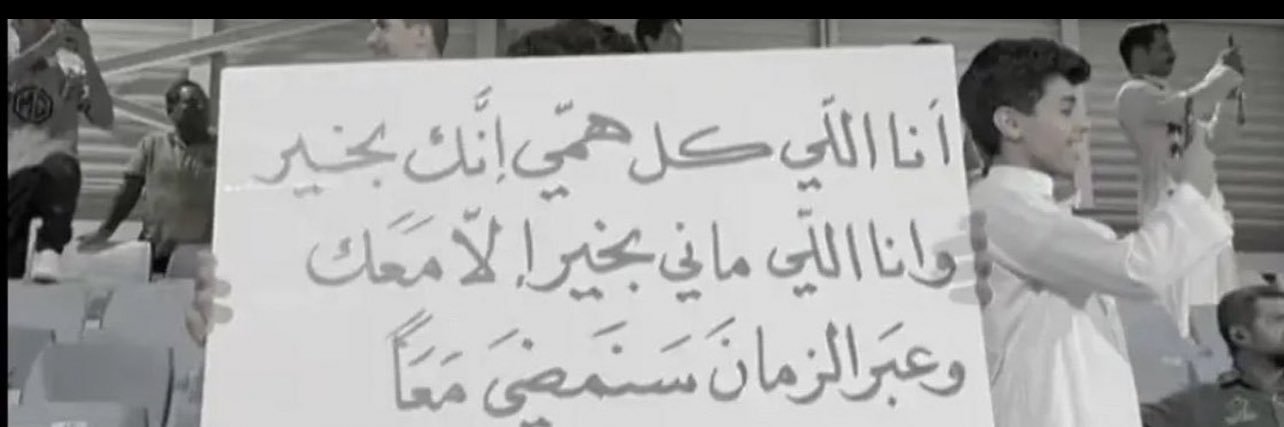 أَنا اللّي كل همّي إنَّك بخير
وانا اللّي ماني بخير إلّا مَعَك
وعبَر الزمانَ سَنَمضيَ مَعَاً
MG